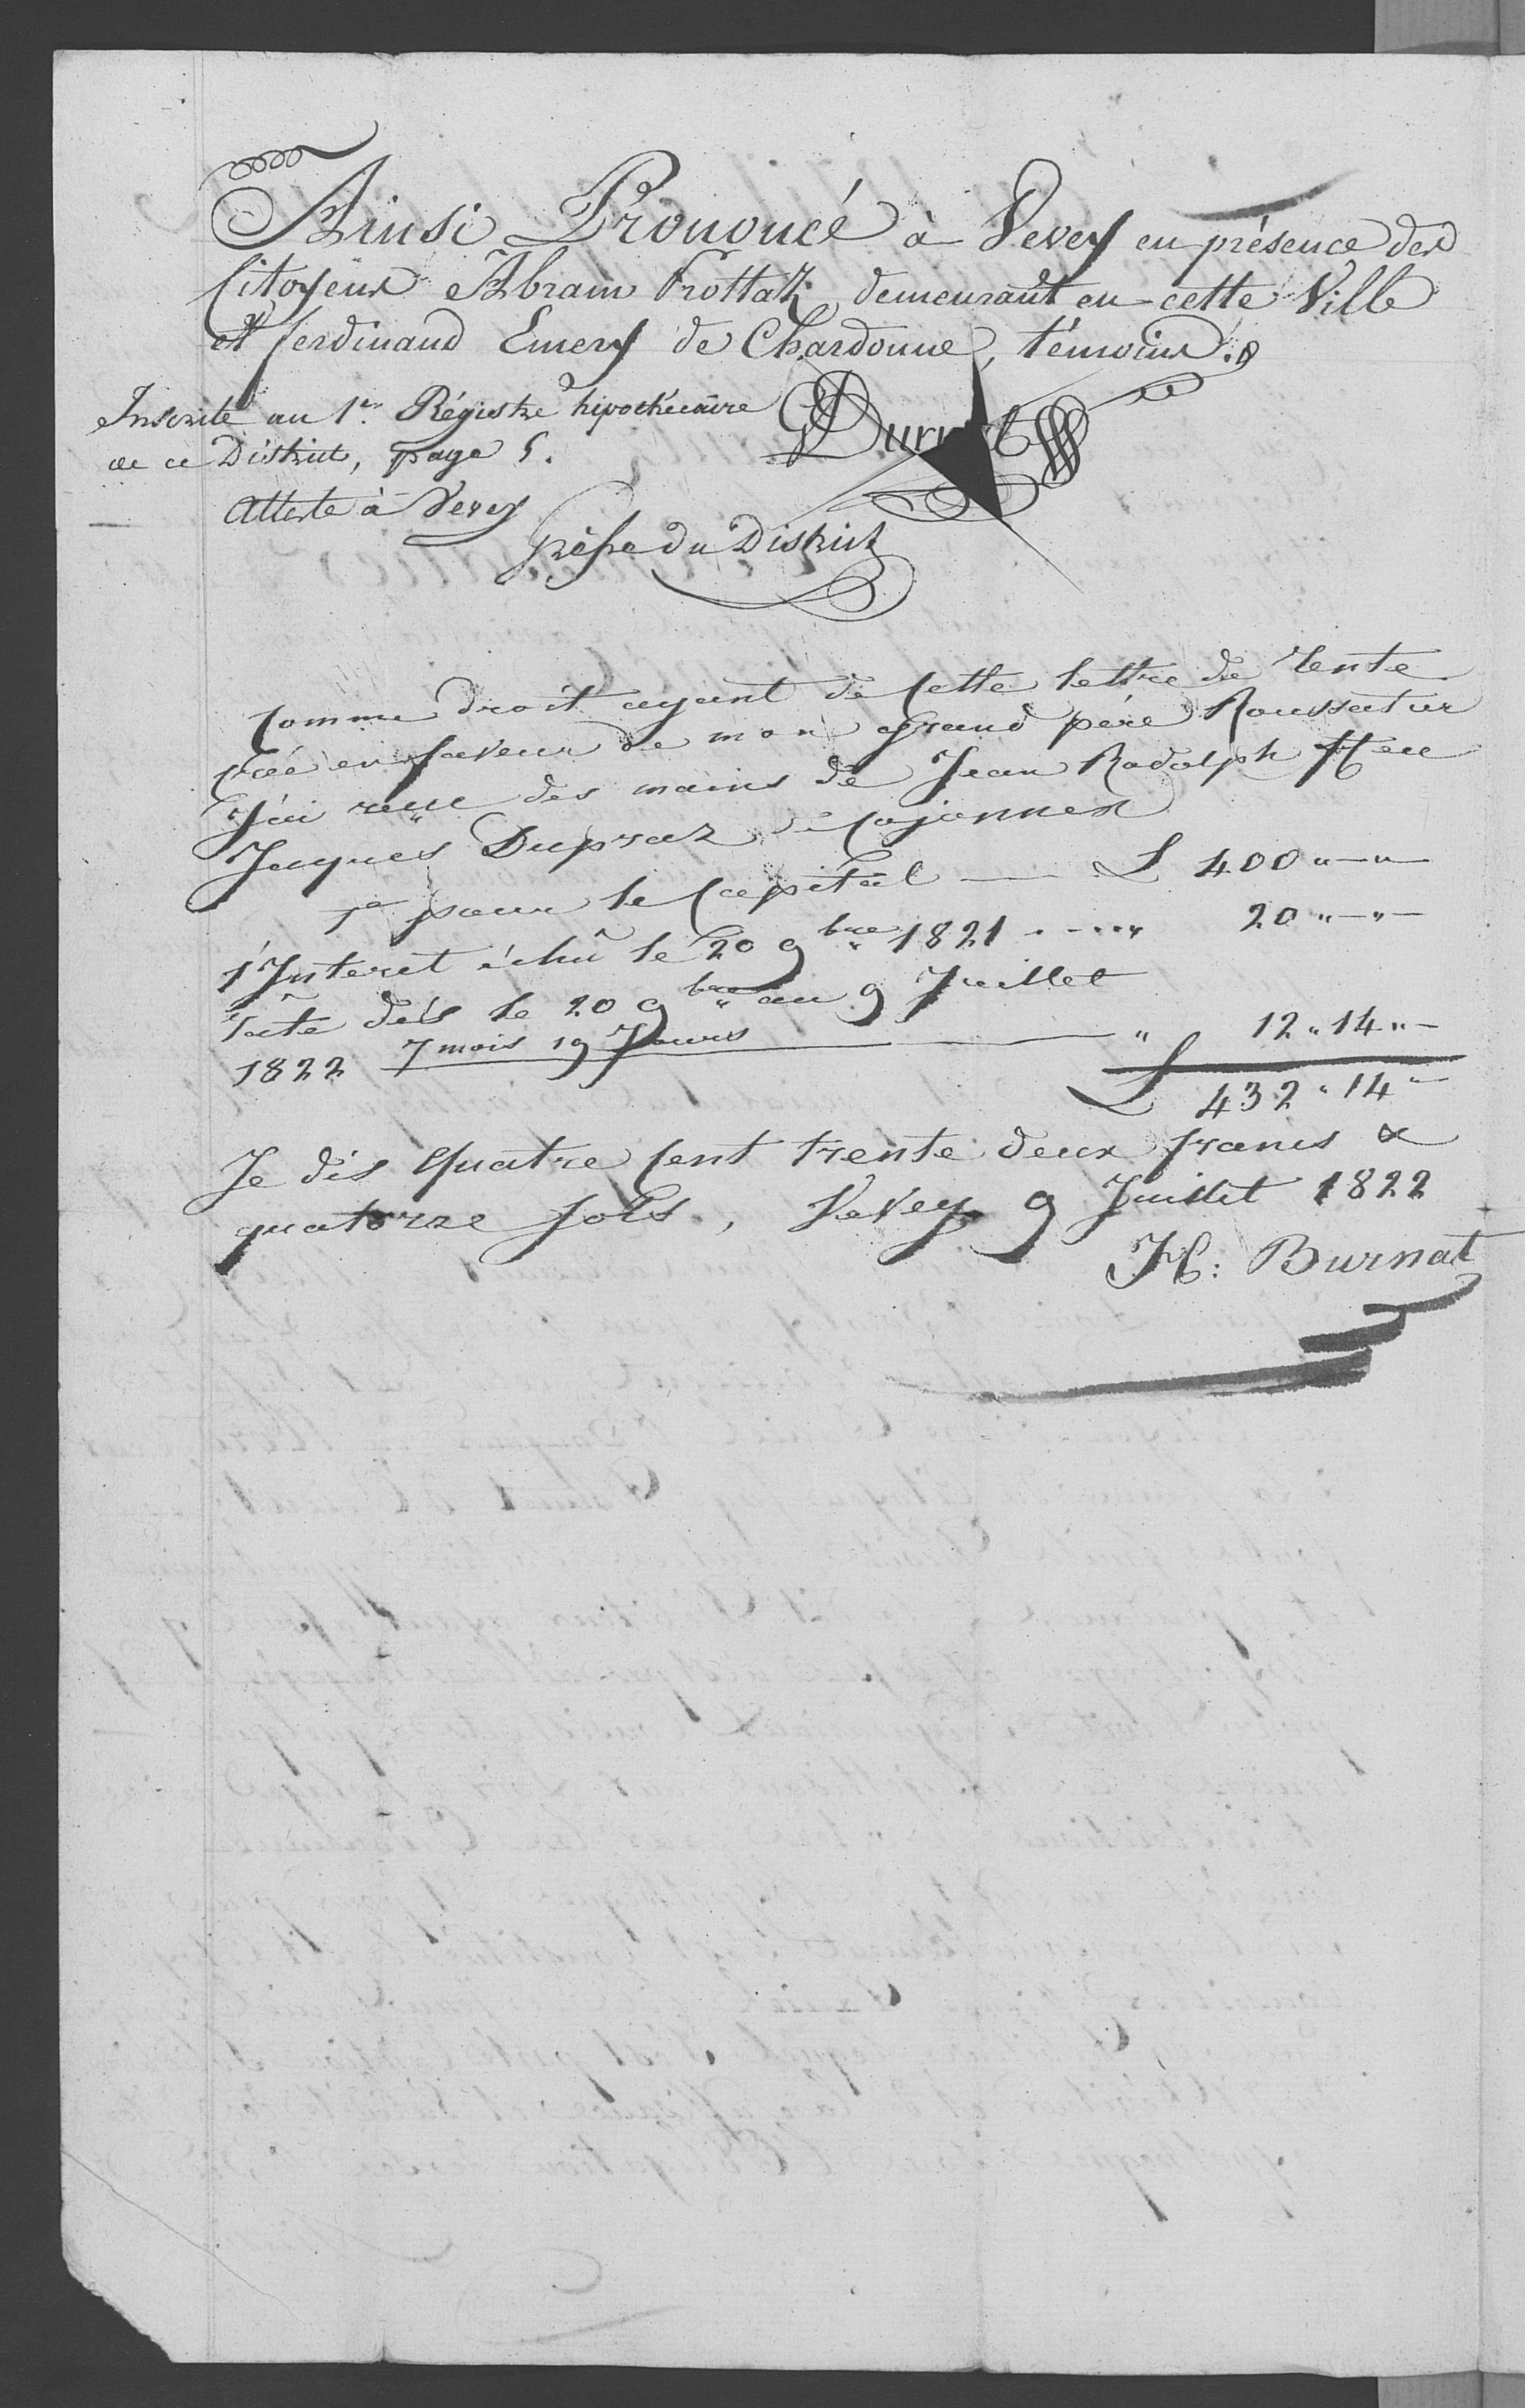 Ainsi Prononcé à Vevey en présence des
Citoÿens Abram Frottaz demeurant en cette Ville
et ferdinand Emery de Chardonne, témoins.
Inscrite au 1er. Régistre hipothécaire
de ce District, page 5.
Atteste à Vevey
Greffe du District
Comme droit ayant de Cette lettre de Rente
Créé en faveur de mon grand père Roussatier
J'ai reçu des mains de Jean Rodolph ffeu
Jaques Dupraz de Cojonnex
pour le Capital — L 400 "—"—
l'Interet échû le 20 9bre 1821 . - .. " 20 "—"—
rate dès le 20 9bre au 9 Juillet
1822 7 mois 19 Jours — " 12 " 14 "—
L 432 " 14 "
Je dis Quatre Cent trente deux francs &
quatorze sols, Vevey 9 Juillet 1822
H: Burnat